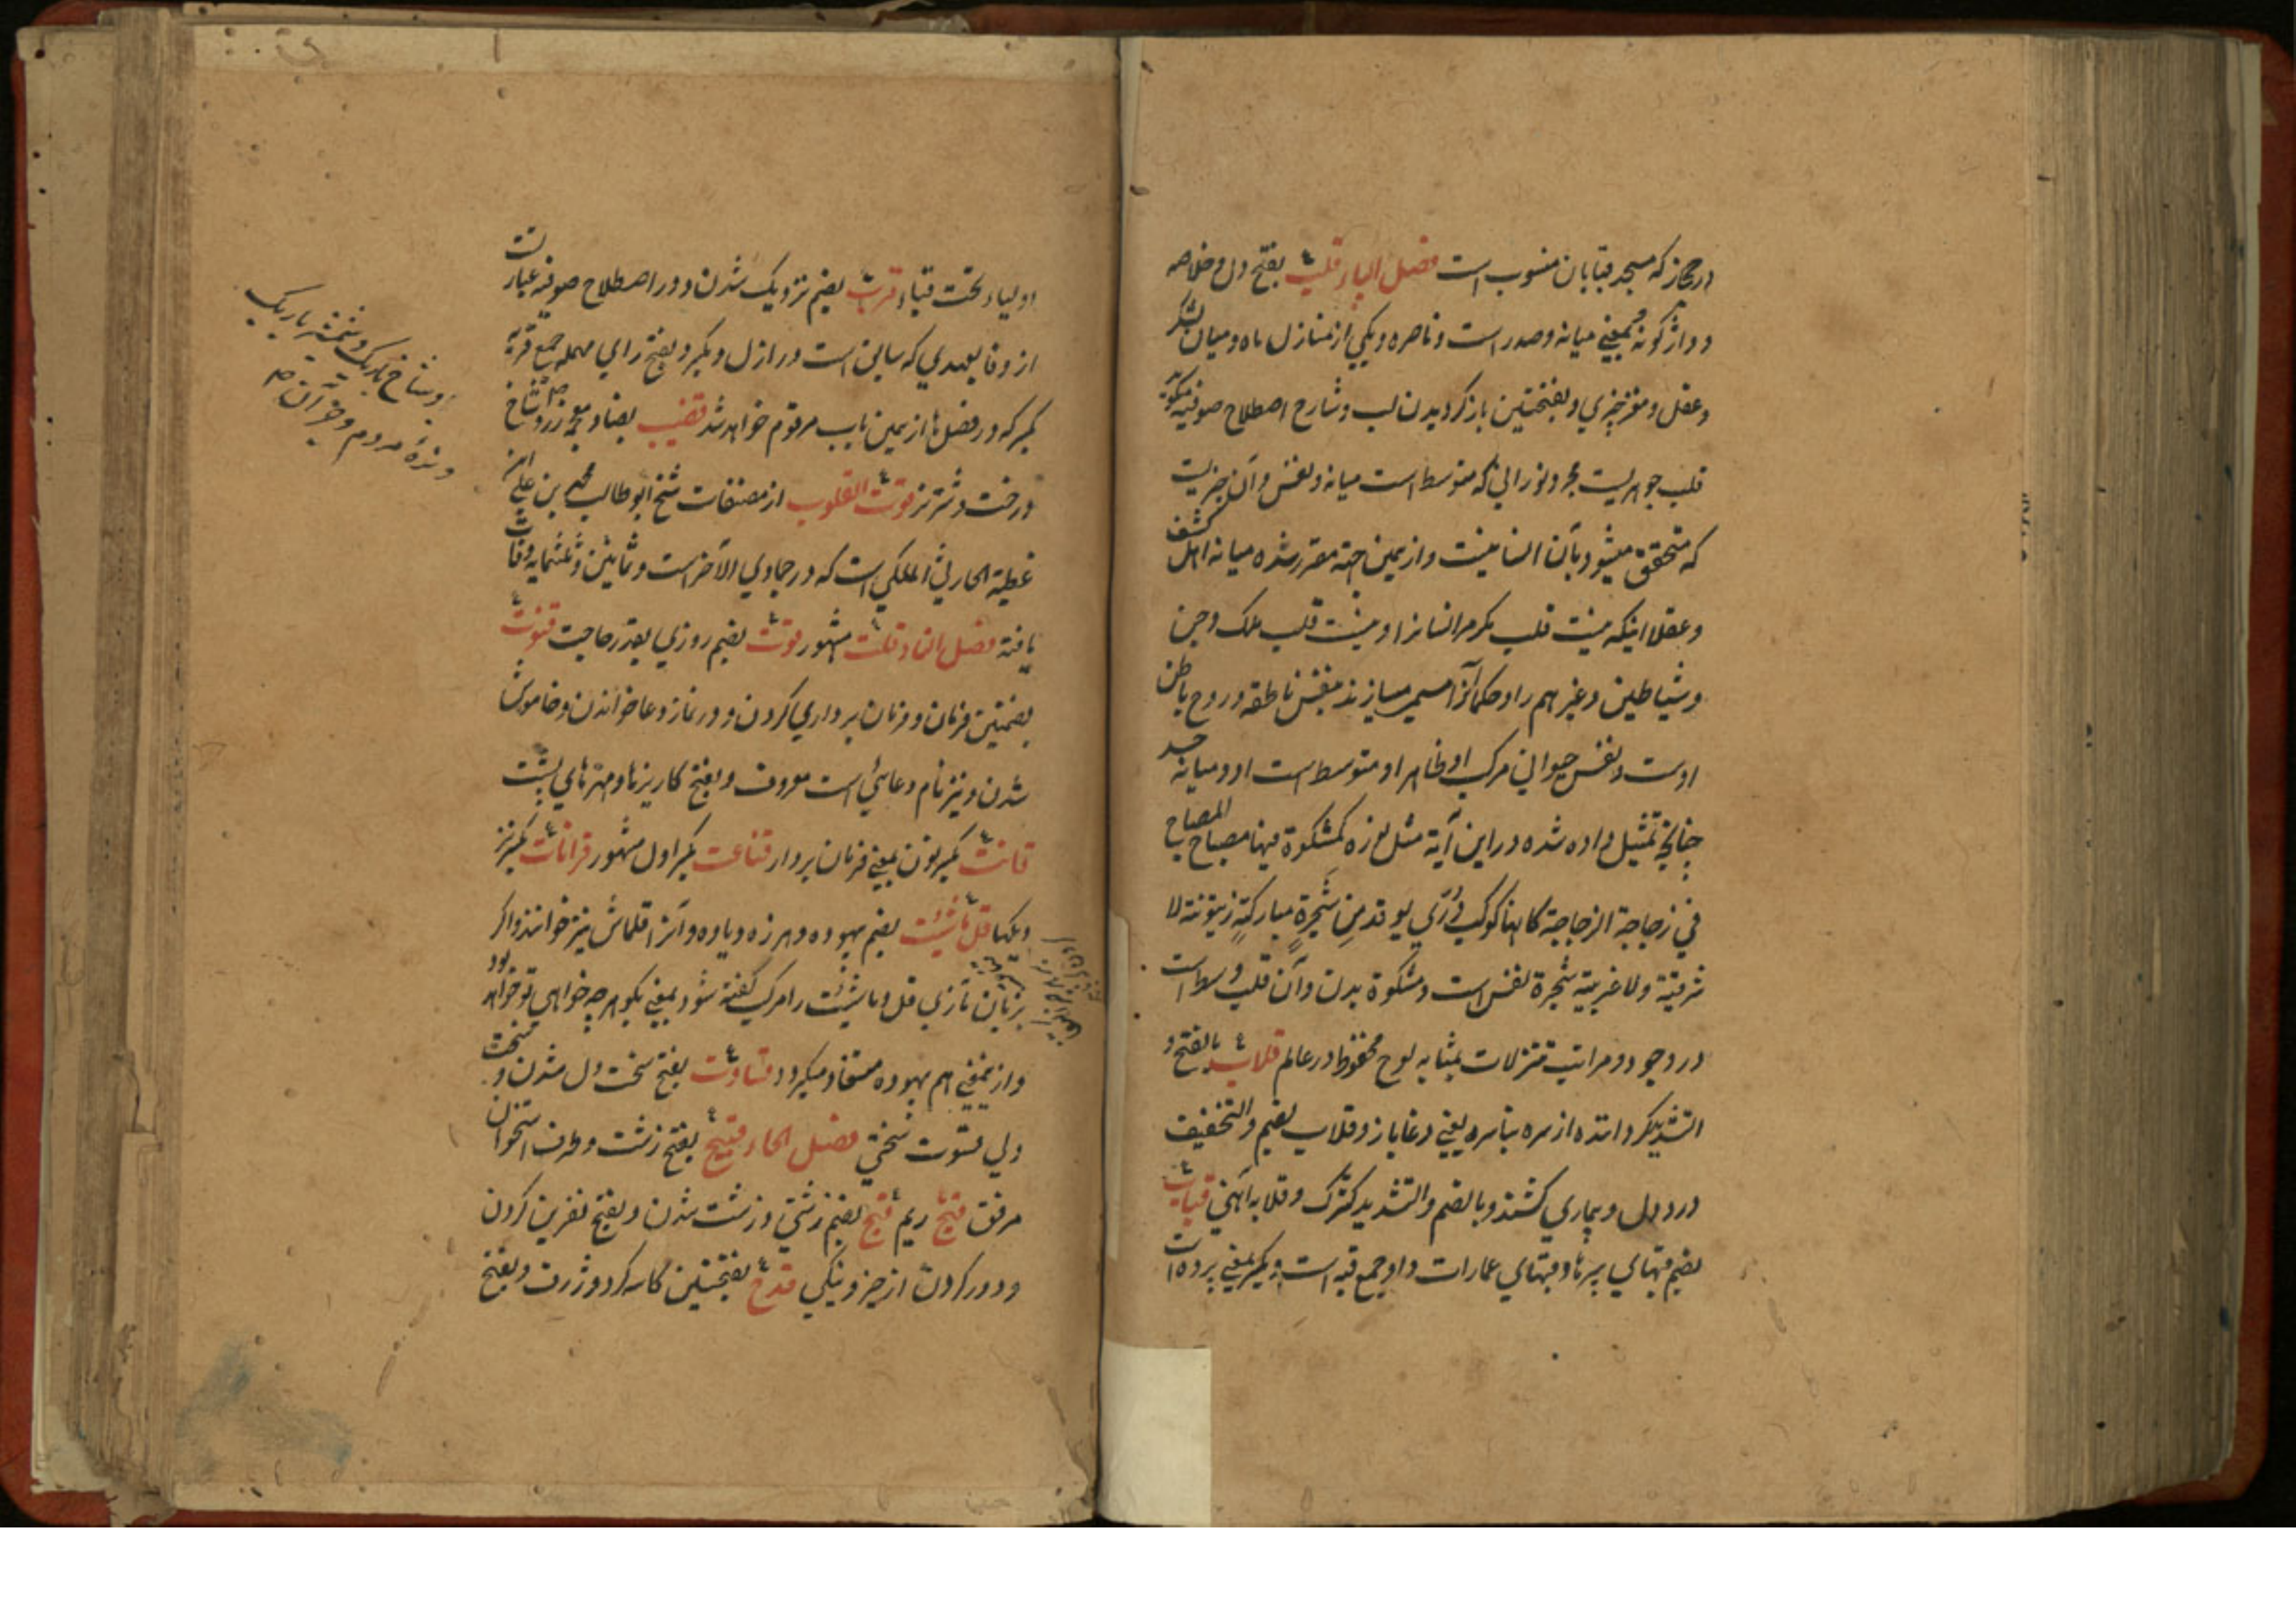 در حجاز که مسجد قبا بان منسوب است فصل الباء قلب بفتح دل و خلاصه
و واژگونه و بمعنی میانه و صدر است و ناصره و یکی از منازل ماه و میان لشکر
و عقل و مغز چیزی و بفتحتین باز گردیدن لب و شارح اصطلاح صوفیه میگوید
قلب جوهریست مجرد نورانی که متوسط است میانه و نفس و آن چیزیست
که متحقق میشود بآن انسانیت و ازیمین جهة مقرر شده میانه اهل کشف
و عقلا اینکه نیست قلب مگر مر انسانرا و نیست قلب ملک و جن
و شیاطین و غیرهم را و حکما آنرا مسمی میسازند بنفس ناطقه و روح باطن
اوست و نفس حیوانی مرکب او ظاهر او متوسط است او و میانه جسد
چنانچه تمثیل داده شده در این آیة مثل نوره کمشکوة فیها مصباح المصباح
في زجاجة الزجاجة کانها کوکب دُرّي یوقد مِن شَجرةٍ مبارکةٍ زیتونة لا
شرقیة ولا غربیة شجرة نفس است و مشکوة بدن و آن قلب وسط است
در وجود و مراتب تنزلات بمثابه لوح محفوظ در عالم قلاب بالفتح و
التشدید گرداننده از سره بناسره یعنی دغاباز و قلاب بضم والتخفیف
درد دل و بیماری کشنده و بالضم والتشدید کژک و قلابه آهنی قباب
بضم قبهای سپرها و قبهای عمارات و او جمع قبه است و بکسر بمعنی پرده است
اولیاء تحت قباء قرب بضم نزدیک شدن و در اصطلاح صوفیه عبارتست
از وفا بعهدی که سابق است در ازل و بکسر و بفتح رای مهمله جمع قربه
بکسر که در فصل ها ازیمین باب مرقوم خواهد شد قضیب بضاد معجمه زر و شاخ
درخت و شتر نر قوت القلوب از مصنفات شیخ ابو طالب محمد بن علی ابن
عطیة الحارثی المکی است که در جمادی الآخر است و ثمانین و ثلثمایه وفات
یافته فصل التاء قلت مشهور قوت بضم روزی بقدر حاجت قنوت
بضمتین فرمان و فرمان برداری کردن و در نماز دعا خواندن و خاموش
شدن و نیز نام دعائی است معروف و بفتح کاریزها و مهرهای پشت
قانت بکسر نون بمعنی فرمان بردار قناعت بکسر اول مشهور قرانات بکسر نیز
و یکها قل ماشیئت بضم بیهوده و هرزه و یاوه و آنرا قلماش نیز خوانند و اگر
بزبان تازی قل و ماشیئت را مرکب گفته شود بمعنی بگو هر چه خواهی تو خواهد بود
و ازیمعنی هم بیهوده مستفاد میگردد قساوت بفتح سخت دل شدن و سخت
دلی قسوت سختی فصل الحاء قبیح بفتح زشت و طرف استخوان
مرفق قیح ریم قبح بضم زشتی و زشت شدن و بفتح نفرین کردن
و دور کردن از خیر و نیکی قدح بفتحتین کاسه گرد و ژرف و بفتح
و شاخ باریک و شمشیر باریک